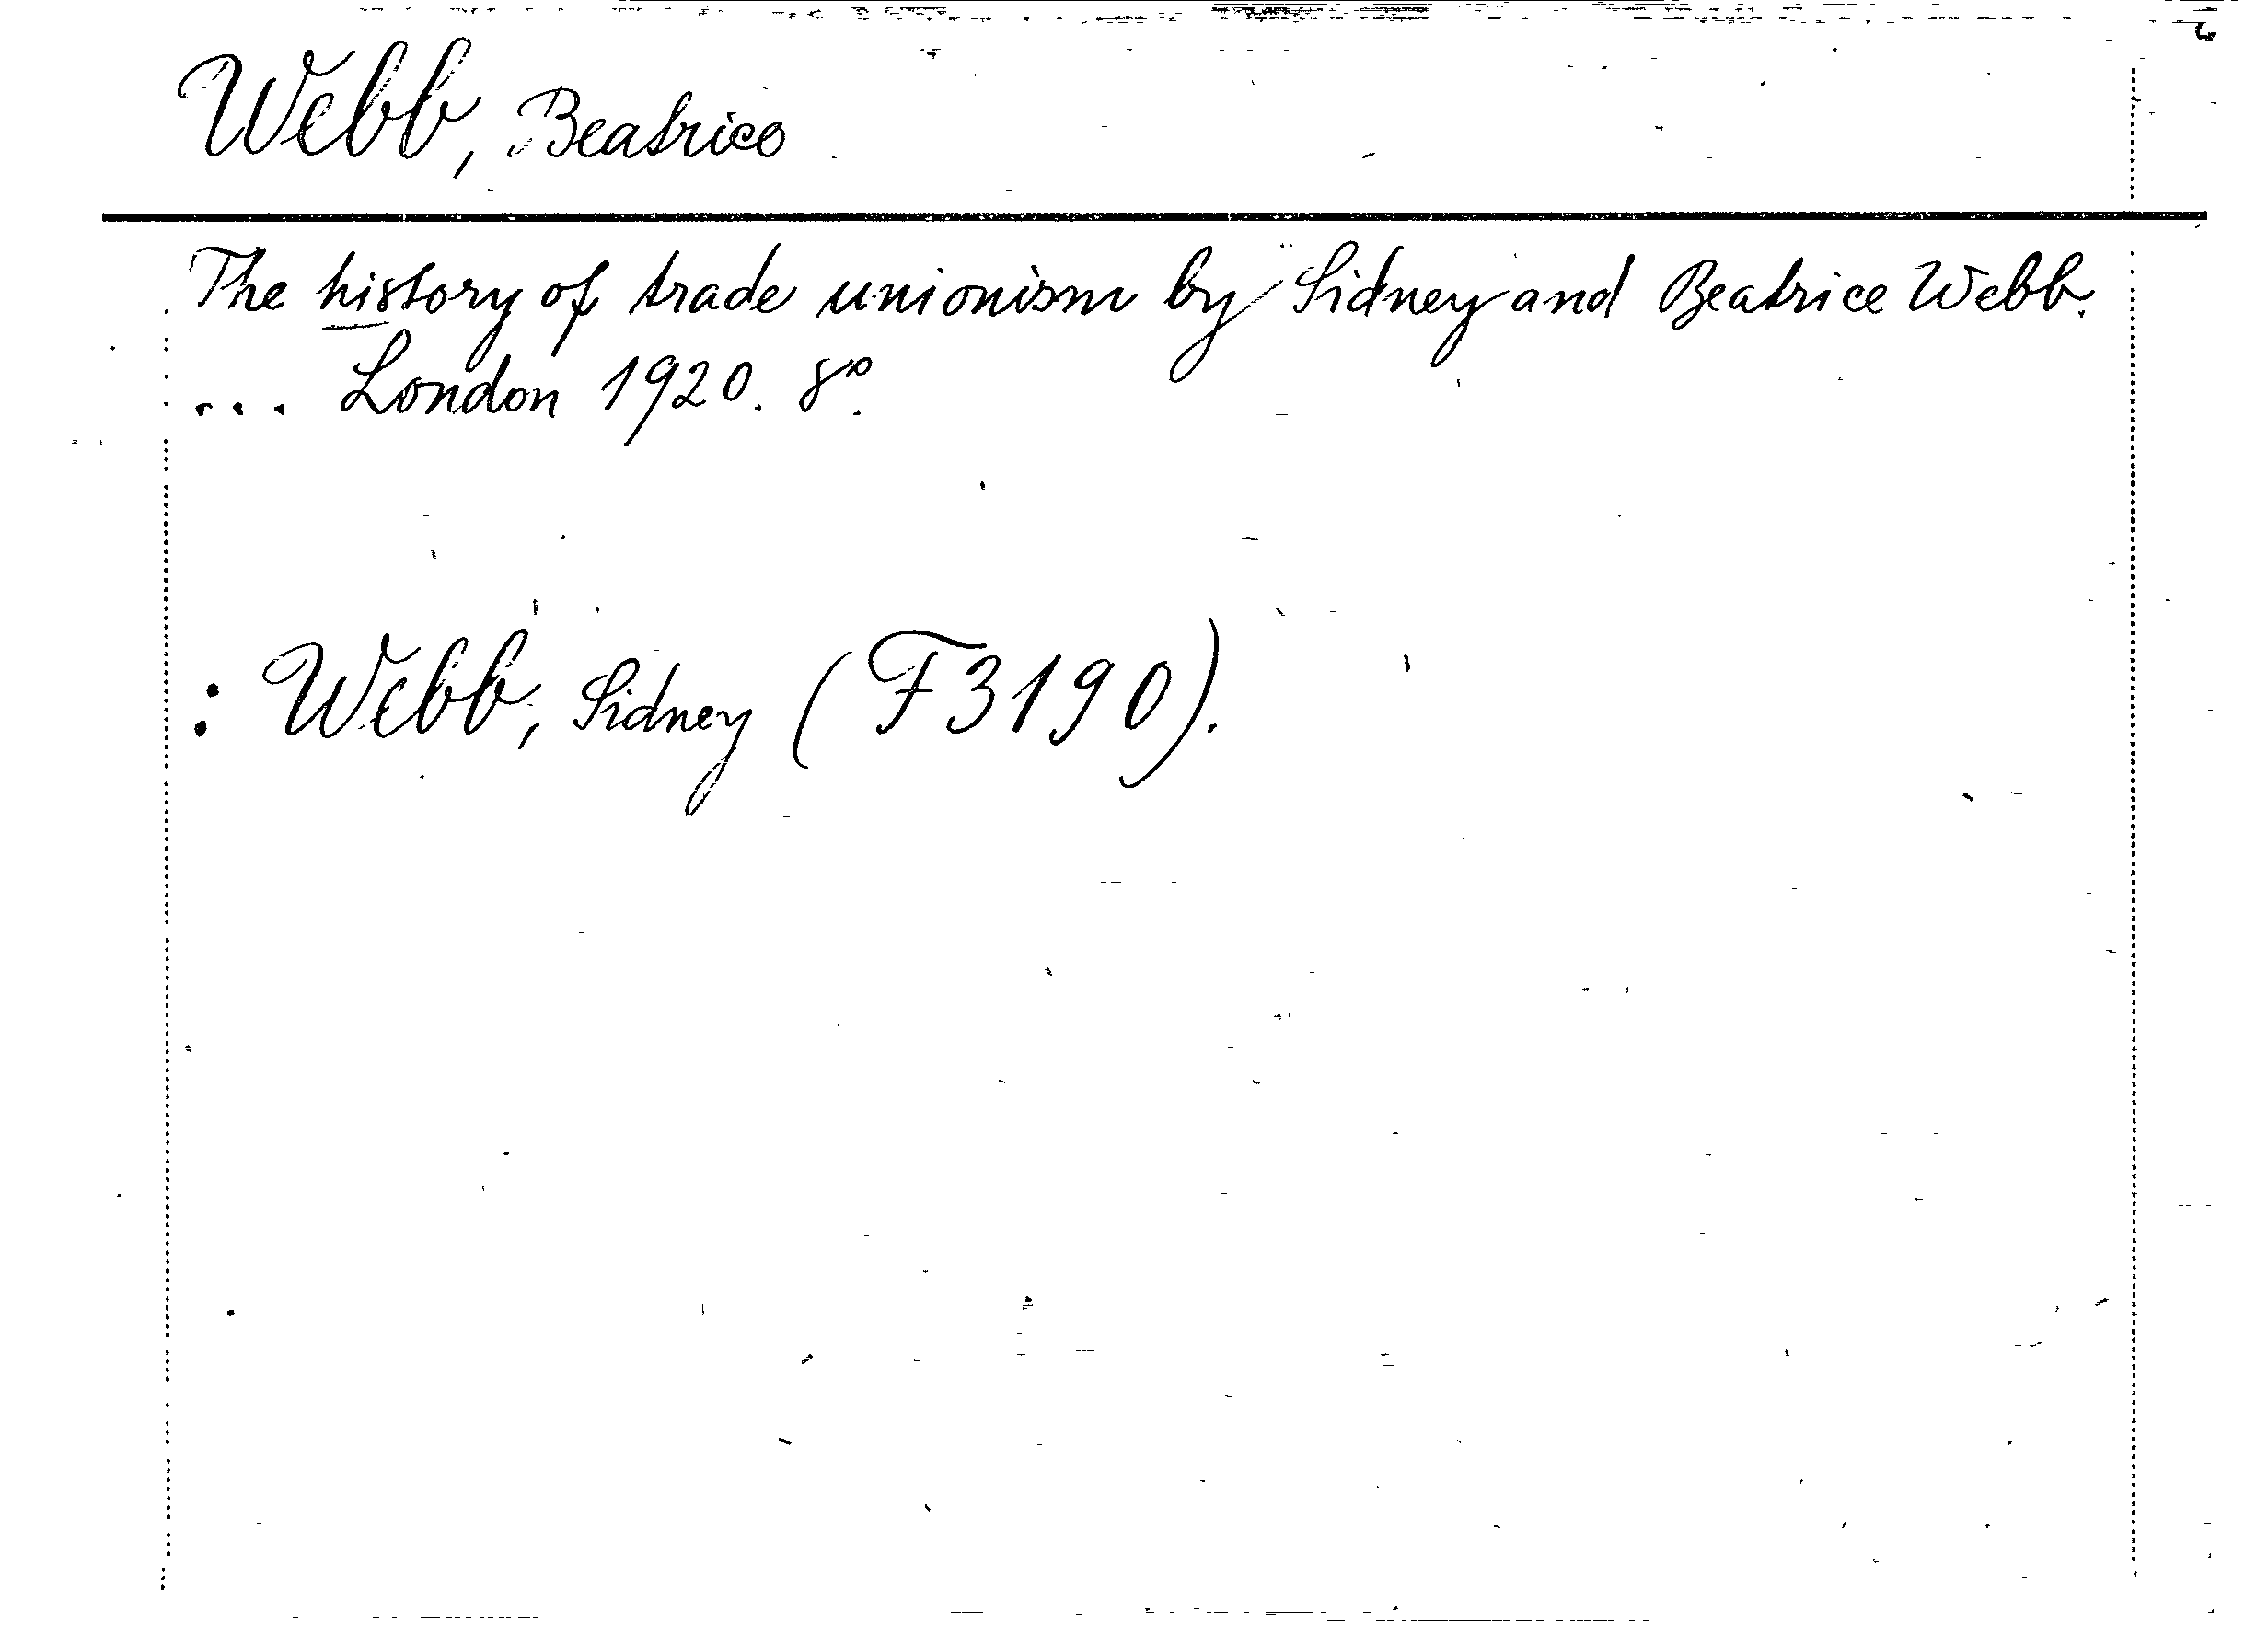 Webb, Beatrice
The history of trade unionism by Sidney and Beatrice Webb.
... London 1920. 8°.
: Webb, Sidney (F3190).